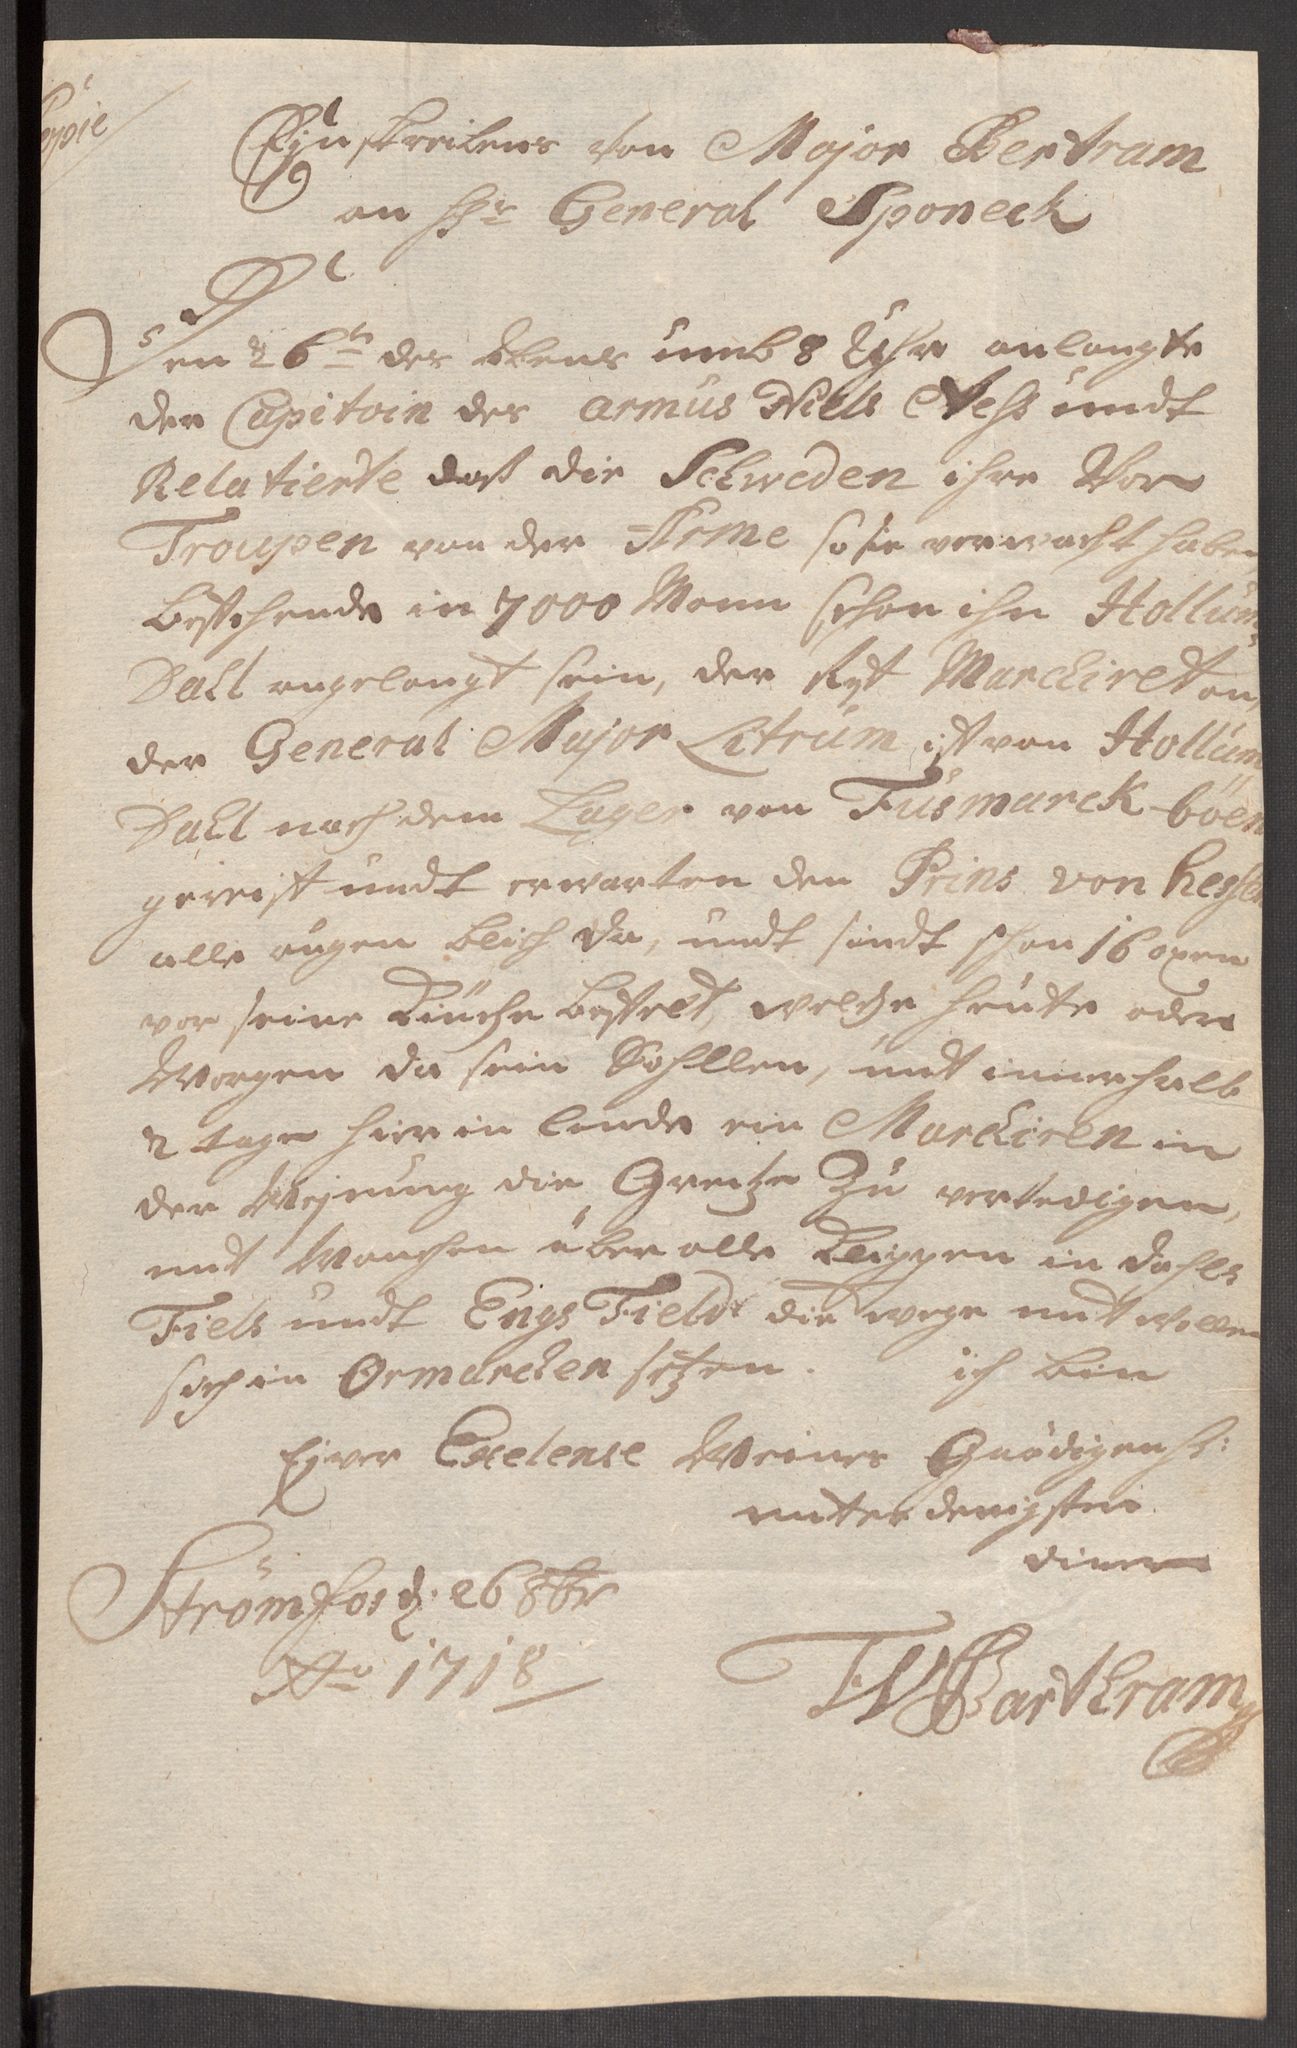 Copie
Ein schreibens von Major Bertram
an Hr General Sponeck
Den 26ten des abens umb 8 Uhr anlangte
der Capitain des armus Niels Ness undt
Relatierte daß die Schweden ihre Vor
Troupen von der Arme so sie verwacht haben
bestehende in 7000 Mann schon ihn Hollum
Dahl angelangt sein, der Rest Marchiret an,
der General Major Litrum ist von Hollum
Dahl nach dem Lager von Fusmarck-böen
gereist undt erwarten den Prins von hessen
alle augen blich da, undt sindt schon 16 oxen
vor seine Küche bestelt, welche heute oder
Morgen da sein Sohllen, undt innerhalb
2 tage hier in lande ein Marchiren in
der Mejnung die Gretze Zu vertedigen,
mit Wanchen über alle Klippen in dahls
Fiels undt Engs Fields die wege mit wollen
sich in Ormarchen setzen. ich bin
Ejver Exelense Meines Gnädigen H:
unterdenigster
diener
Strömfos d. 26 8br
Ao 1718
TW Barthram